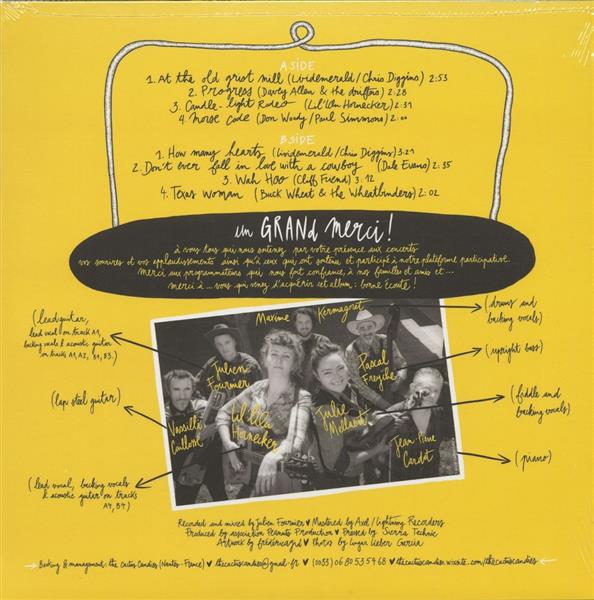 A SIDE
1. At the old grist mill (Lividemerald / Chris Diggins) 2:53
2. Progress (Davey Allen & the drifters) 2:28
3. Candle-light Rodeo (Lil'lân Hornecker) 2:31
4. Morse Code (Don Woody / Paul Simmons) 2:00
B SIDE
1. How many hearts (Lividemerald / Chris Diggins) 3:21
2. Don't ever fall in love with a cowboy (Dale Evans) 2:35
3. Wah Hoo (Cliff Friend) 3:12
4. Texas Woman (Buck Wheat & the Wheatbinders) 2:02
un GRANd merci!
à vous tous qui nous soutenez par votre présence aux concerts
vos sourires et vos applaudissements ainsi qu'à ceux qui ont soutenu et participé à notre plateforme participative.
Merci aux programmateurs qui nous font confiance, à nos familles et amis et...
merci à... vous qui venez d'acquérir cet album: bonne écoute!
(lead guitar,
lead vocal on track A1,
backing vocals & acoustic guitar
on tracks A1, A2, B1, B3.)
(lap steel guitar)
(lead vocal, backing vocals
& acoustic guitar on tracks
A4, B4)
Maxime Kermagoret
Julien
Fournier
Pascal
Freyche
Vassilli
Caillosse
Lil'lân
Hornecker
Julie
Mellaert
Jean-Pierre
Cardot
(drums and
backing vocals)
(upright bass)
(fiddle and
backing vocals)
(piano)
Recorded and mixed by Julien Fournier ♥ Mastered by Axel / Lightning Recorders
Produced by association Peanuts Production ♥ Pressed by Sierra Technic
Artwork by frédéricajzd ♥ Photos by Lugar Ueber Garcia
Booking & management: the Cactus Candies (Nantes - France) ♥ thecactuscandies@gmail.fr ♥ (0033) 06 80 53 54 68 ♥ thecactuscandies.wixsite.com/thecactuscandies